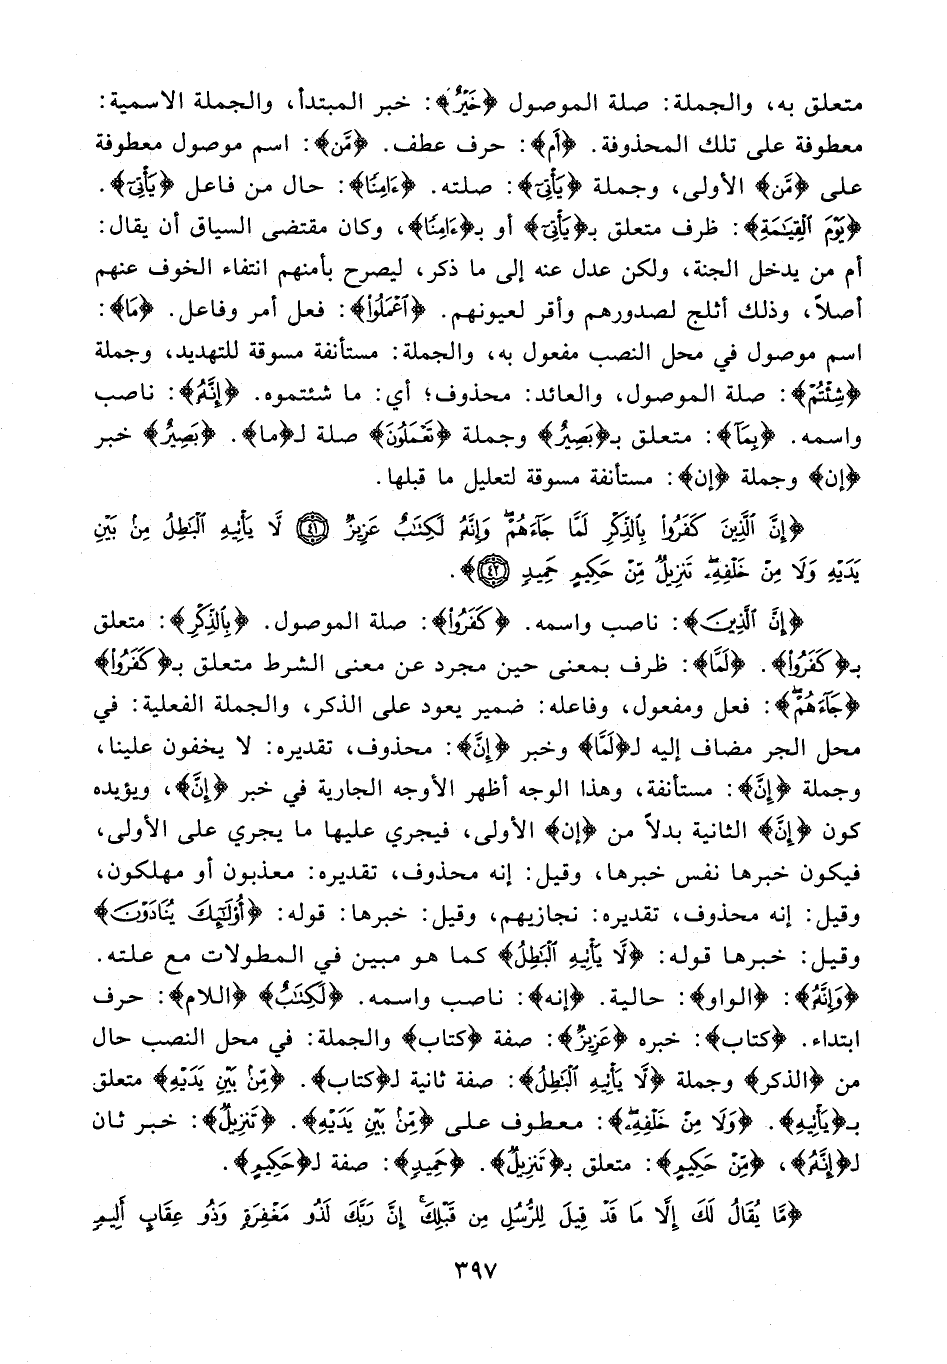 متعلق به، والجملة: صلة الموصول ﴿خَيْرٌ﴾: خبر المبتدأ، والجملة الاسمية:
معطوفة على تلك المحذوفة. ﴿أَم﴾: حرف عطف. ﴿مَّن﴾: اسم موصول معطوفة
على ﴿مَّن﴾ الأولى، وجملة ﴿يَأْتِيٓ﴾: صلته. ﴿ءَامِنًا﴾: حال من فاعل ﴿يَأْتِيٓ﴾.
﴿يَوْمَ ٱلْقِيَٰمَةِ﴾: ظرف متعلق بـ﴿يَأْتِيٓ﴾ أو بـ﴿ءَامِنًا﴾، وكان مقتضى السياق أن يقال:
أم من يدخل الجنة، ولكن عدل عنه إلى ما ذكر، ليصرح بأمنهم انتفاء الخوف عنهم
أصلاً، وذلك أثلج لصدورهم وأقر لعيونهم. ﴿ٱعْمَلُوا۟﴾: فعل أمر وفاعل. ﴿مَا﴾:
اسم موصول في محل النصب مفعول به، والجملة: مستأنفة مسوقة للتهديد، وجملة
﴿شِئْتُمْ﴾: صلة الموصول، والعائد: محذوف؛ أي: ما شئتموه. ﴿إِنَّهُۥ﴾: ناصب
واسمه. ﴿بِمَآ﴾: متعلق بـ﴿بَصِيرٌ﴾ وجملة ﴿تَعْمَلُونَ﴾ صلة لـ﴿ما﴾. ﴿بَصِيرٌ﴾ خبر
﴿إن﴾ وجملة ﴿إن﴾: مستأنفة مسوقة لتعليل ما قبلها.
﴿إِنَّ ٱلَّذِينَ كَفَرُوا۟ بِٱلذِّكْرِ لَمَّا جَآءَهُمْ ۖ وَإِنَّهُۥ لَكِتَٰبٌ عَزِيزٌ ٤١ لَّا يَأْتِيهِ ٱلْبَٰطِلُ مِنۢ بَيْنِ
يَدَيْهِ وَلَا مِنْ خَلْفِهِۦ ۖ تَنزِيلٌ مِّنْ حَكِيمٍ حَمِيدٍ ٤٢﴾.
﴿إِنَّ ٱلَّذِينَ﴾: ناصب واسمه. ﴿كَفَرُوا۟﴾: صلة الموصول. ﴿بِٱلذِّكْرِ﴾: متعلق
بـ﴿كَفَرُوا۟﴾. ﴿لَمَّا﴾: ظرف بمعنى حين مجرد عن معنى الشرط متعلق بـ﴿كَفَرُوا۟﴾
﴿جَآءَهُمْ ۖ﴾: فعل ومفعول، وفاعله: ضمير يعود على الذكر، والجملة الفعلية: في
محل الجر مضاف إليه لـ﴿لَمَّا﴾ وخبر ﴿إِنَّ﴾: محذوف، تقديره: لا يخفون علينا،
وجملة ﴿إِنَّ﴾: مستأنفة، وهذا الوجه أظهر الأوجه الجارية في خبر ﴿إِنَّ﴾، ويؤيده
كون ﴿إِنَّ﴾ الثانية بدلاً من ﴿إن﴾ الأولى، فيجري عليها ما يجري على الأولى،
فيكون خبرها نفس خبرها، وقيل: إنه محذوف، تقديره: معذبون أو مهلكون،
وقيل: إنه محذوف، تقديره: نجازيهم، وقيل: خبرها: قوله: ﴿أُو۟لَٰٓئِكَ يُنَادَوْنَ﴾
وقيل: خبرها قوله: ﴿لَّا يَأْتِيهِ ٱلْبَٰطِلُ﴾ كما هو مبين في المطولات مع علته.
﴿وَإِنَّهُۥ﴾: ﴿الواو﴾: حالية. ﴿إنه﴾: ناصب واسمه. ﴿لَكِتَٰبٌ﴾ ﴿اللام﴾: حرف
ابتداء. ﴿كتاب﴾: خبره ﴿عَزِيزٌ﴾: صفة ﴿كتاب﴾ والجملة: في محل النصب حال
من ﴿الذكر﴾ وجملة ﴿لَّا يَأْتِيهِ ٱلْبَٰطِلُ﴾: صفة ثانية لـ﴿كتاب﴾. ﴿مِنۢ بَيْنِ يَدَيْهِ﴾ متعلق
بـ﴿يَأْتِيهِ﴾. ﴿وَلَا مِنْ خَلْفِهِۦ ۖ﴾: معطوف على ﴿مِنۢ بَيْنِ يَدَيْهِ﴾. ﴿تَنزِيلٌ﴾: خبر ثان
لـ﴿إِنَّهُۥ﴾، ﴿مِّنْ حَكِيمٍ﴾: متعلق بـ﴿تَنزِيلٌ﴾. ﴿حَمِيدٍ﴾: صفة لـ﴿حَكِيمٍ﴾.
﴿مَّا يُقَالُ لَكَ إِلَّا مَا قَدْ قِيلَ لِلرُّسُلِ مِن قَبْلِكَ ۚ إِنَّ رَبَّكَ لَذُو مَغْفِرَةٍ وَذُو عِقَابٍ أَلِيمٍ
٣٩٧